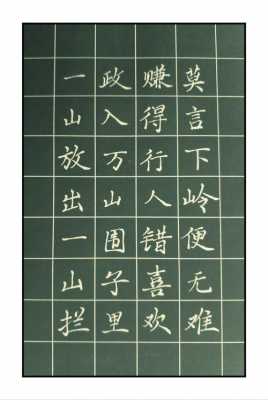 莫言下岭便无难
赚得行人错喜欢
政入万山围子里
一山放出一山拦